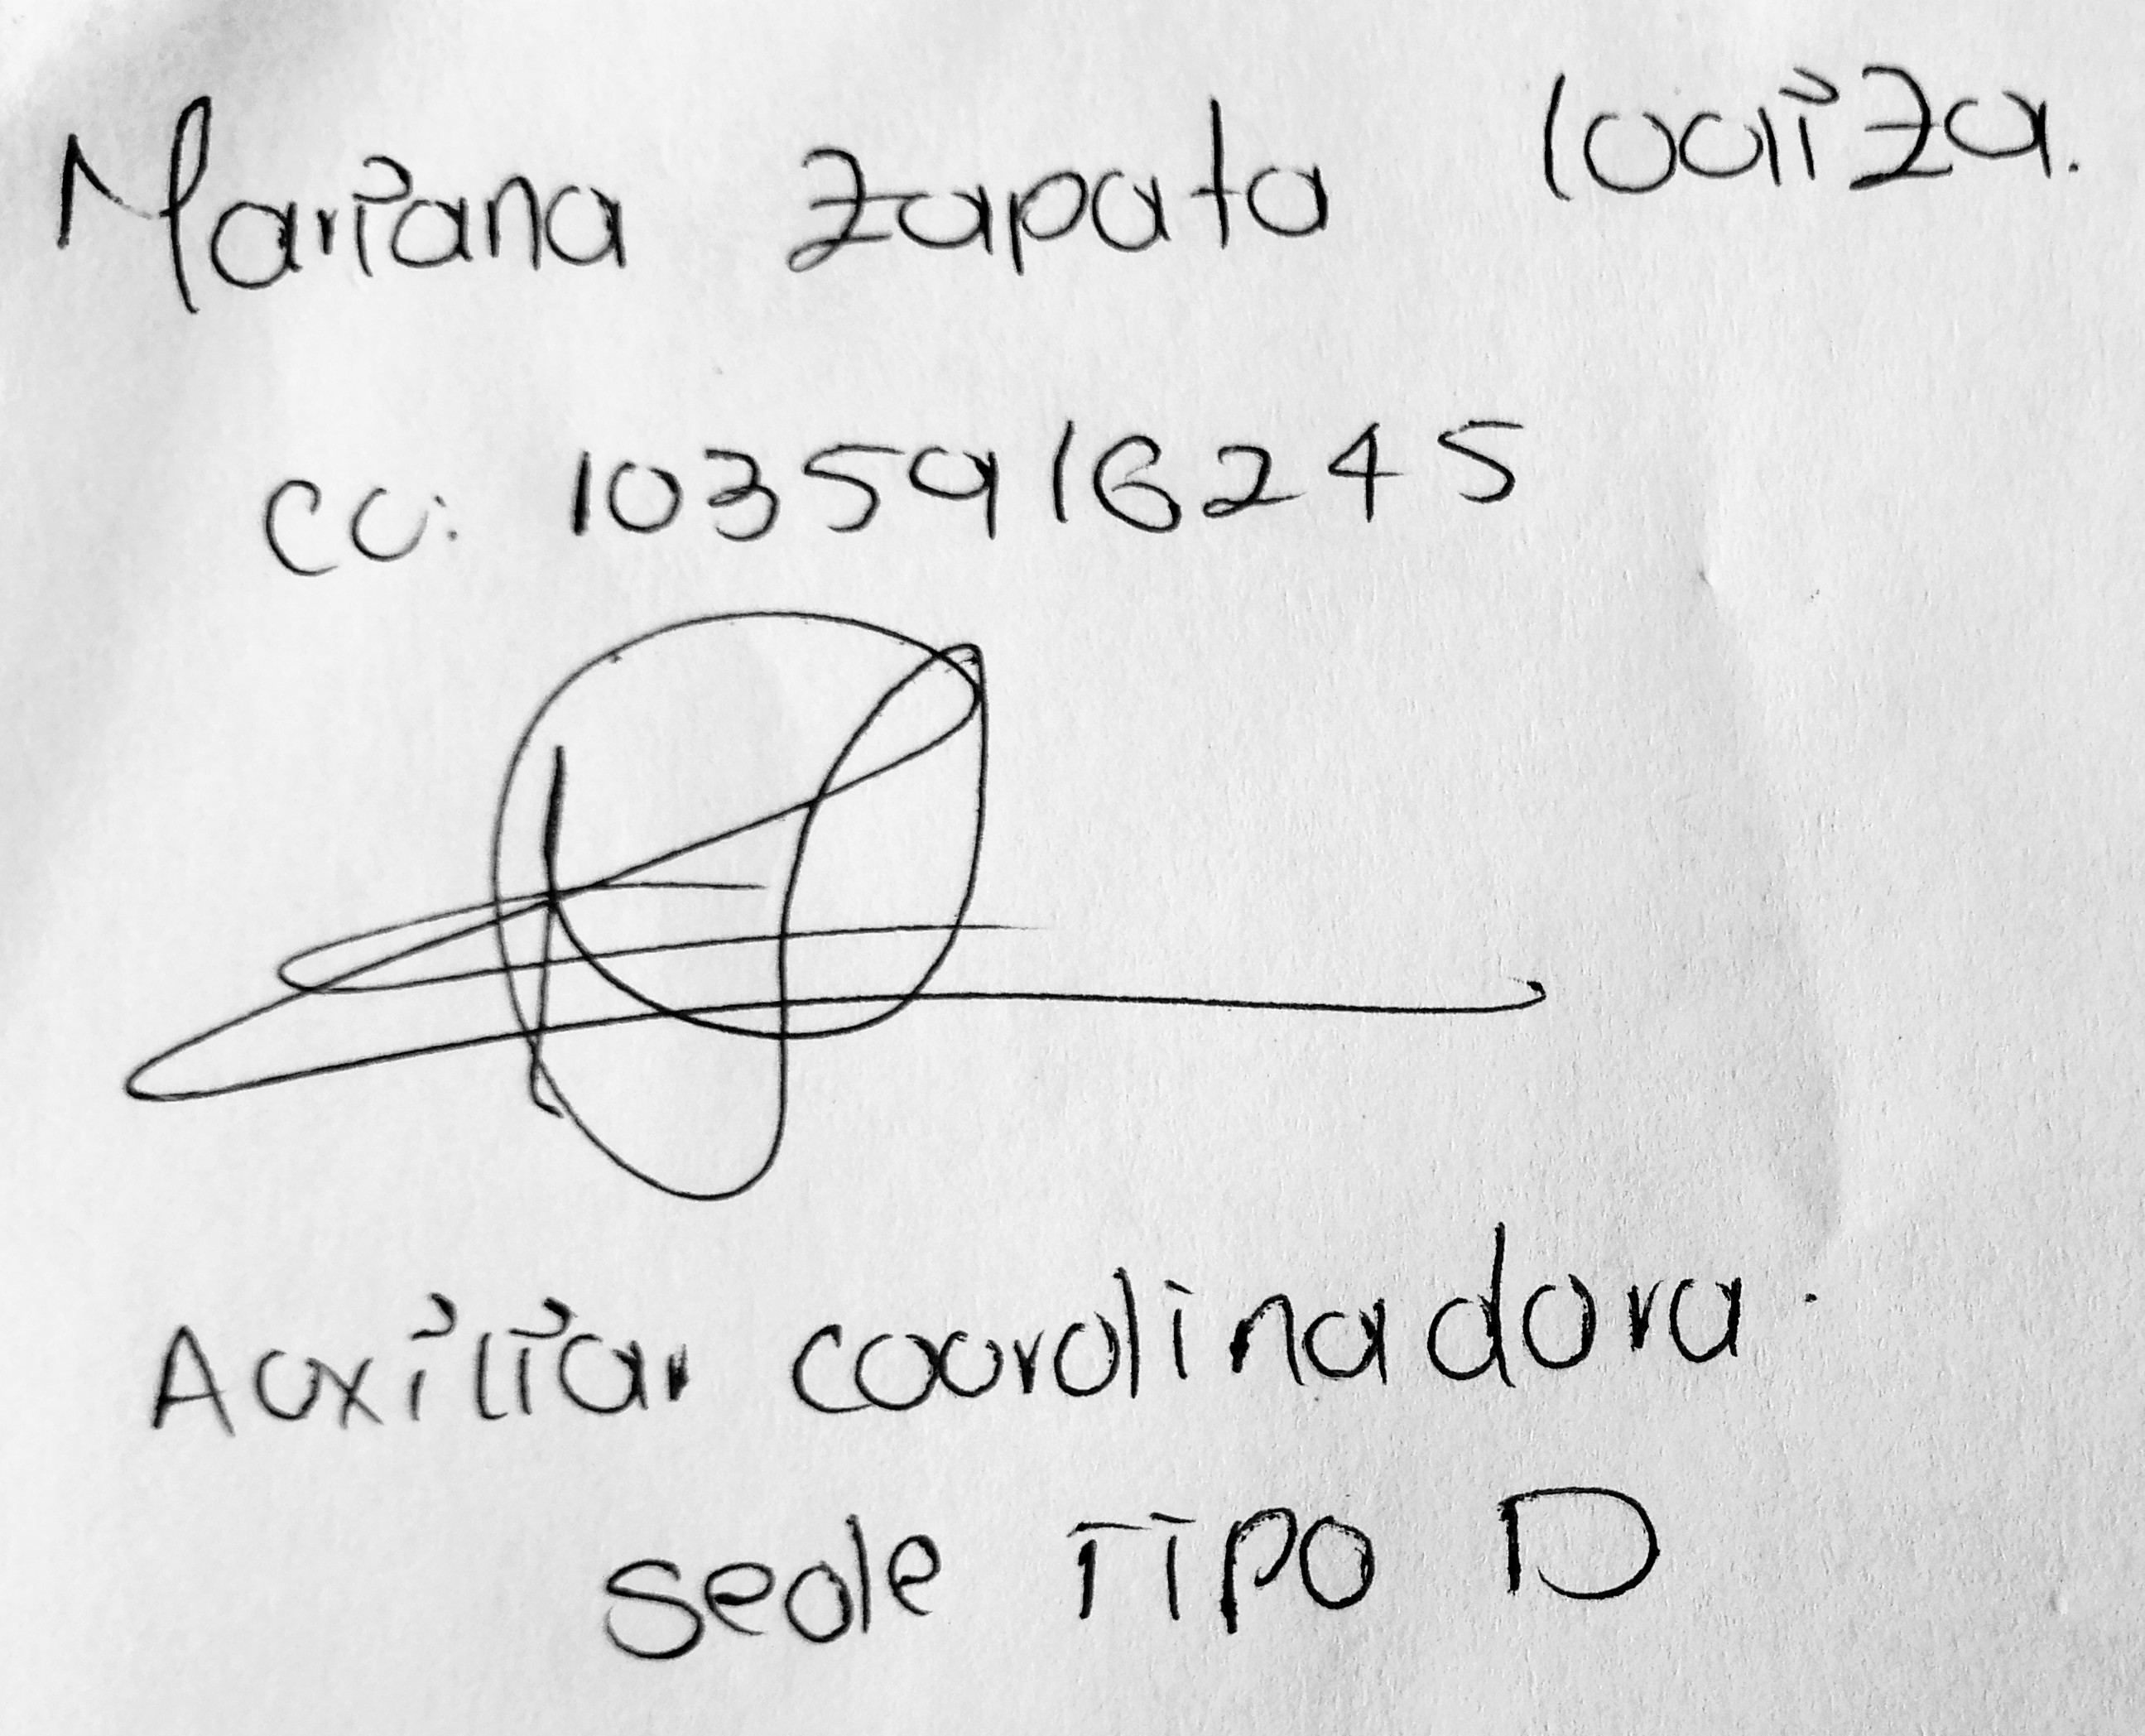 Mariana Zapata loaiza.
CC: 1035916245
Auxiliar coordinadora.
sede TIPO D